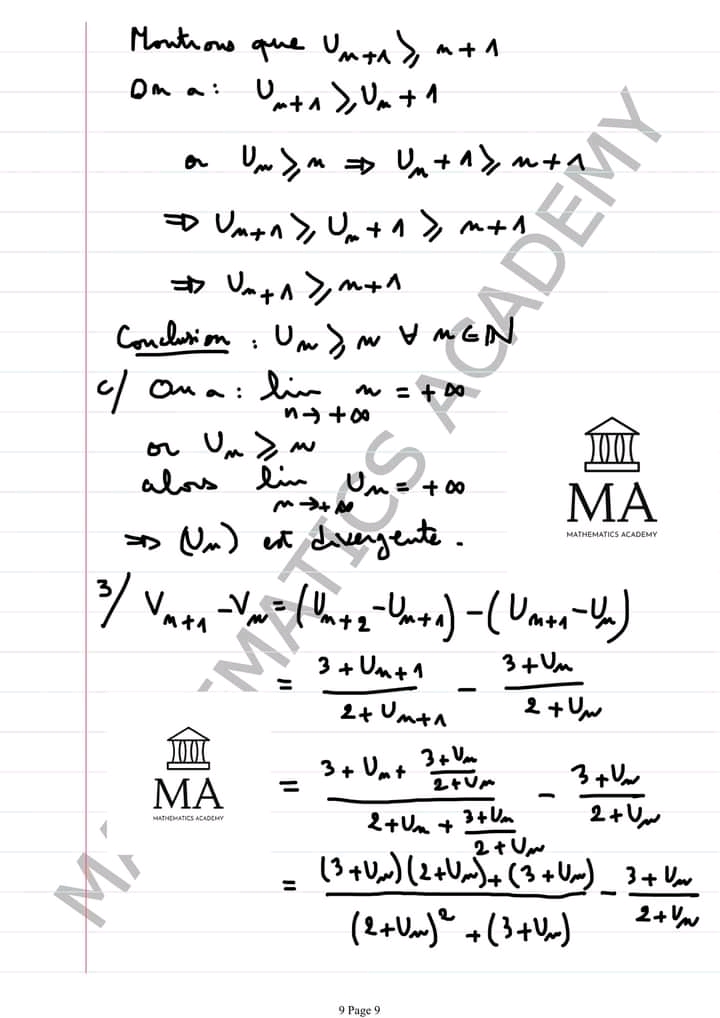 Montrons que U_{n+1} ⩾ n+1
On a : U_{n+1} ⩾ U_n + 1
or U_n ⩾ n ⇒ U_n + 1 ⩾ n+1
⇒ U_{n+1} ⩾ U_n + 1 ⩾ n+1
⇒ U_{n+1} ⩾ n+1
Conclusion : U_n ⩾ n ∀ n ∈ ℕ
c/ On a : lim_{n→+∞} n = +∞
or U_n ⩾ n
alors lim_{n→+∞} U_n = +∞
⇒ (U_n) est divergente.
MA
MATHEMATICS ACADEMY
3/ V_{n+1} - V_n = (U_{n+2} - U_{n+1}) - (U_{n+1} - U_n)
= \frac{3+U_{n+1}}{2+U_{n+1}} - \frac{3+U_n}{2+U_n}
= \frac{3+U_n+\frac{3+U_n}{2+U_n}}{2+U_n+\frac{3+U_n}{2+U_n}} - \frac{3+U_n}{2+U_n}
= \frac{(3+U_n)(2+U_n)+(3+U_n)}{(2+U_n)^2+(3+U_n)} - \frac{3+U_n}{2+U_n}
MA
MATHEMATICS ACADEMY
MATHEMATICS ACADEMY
9 Page 9